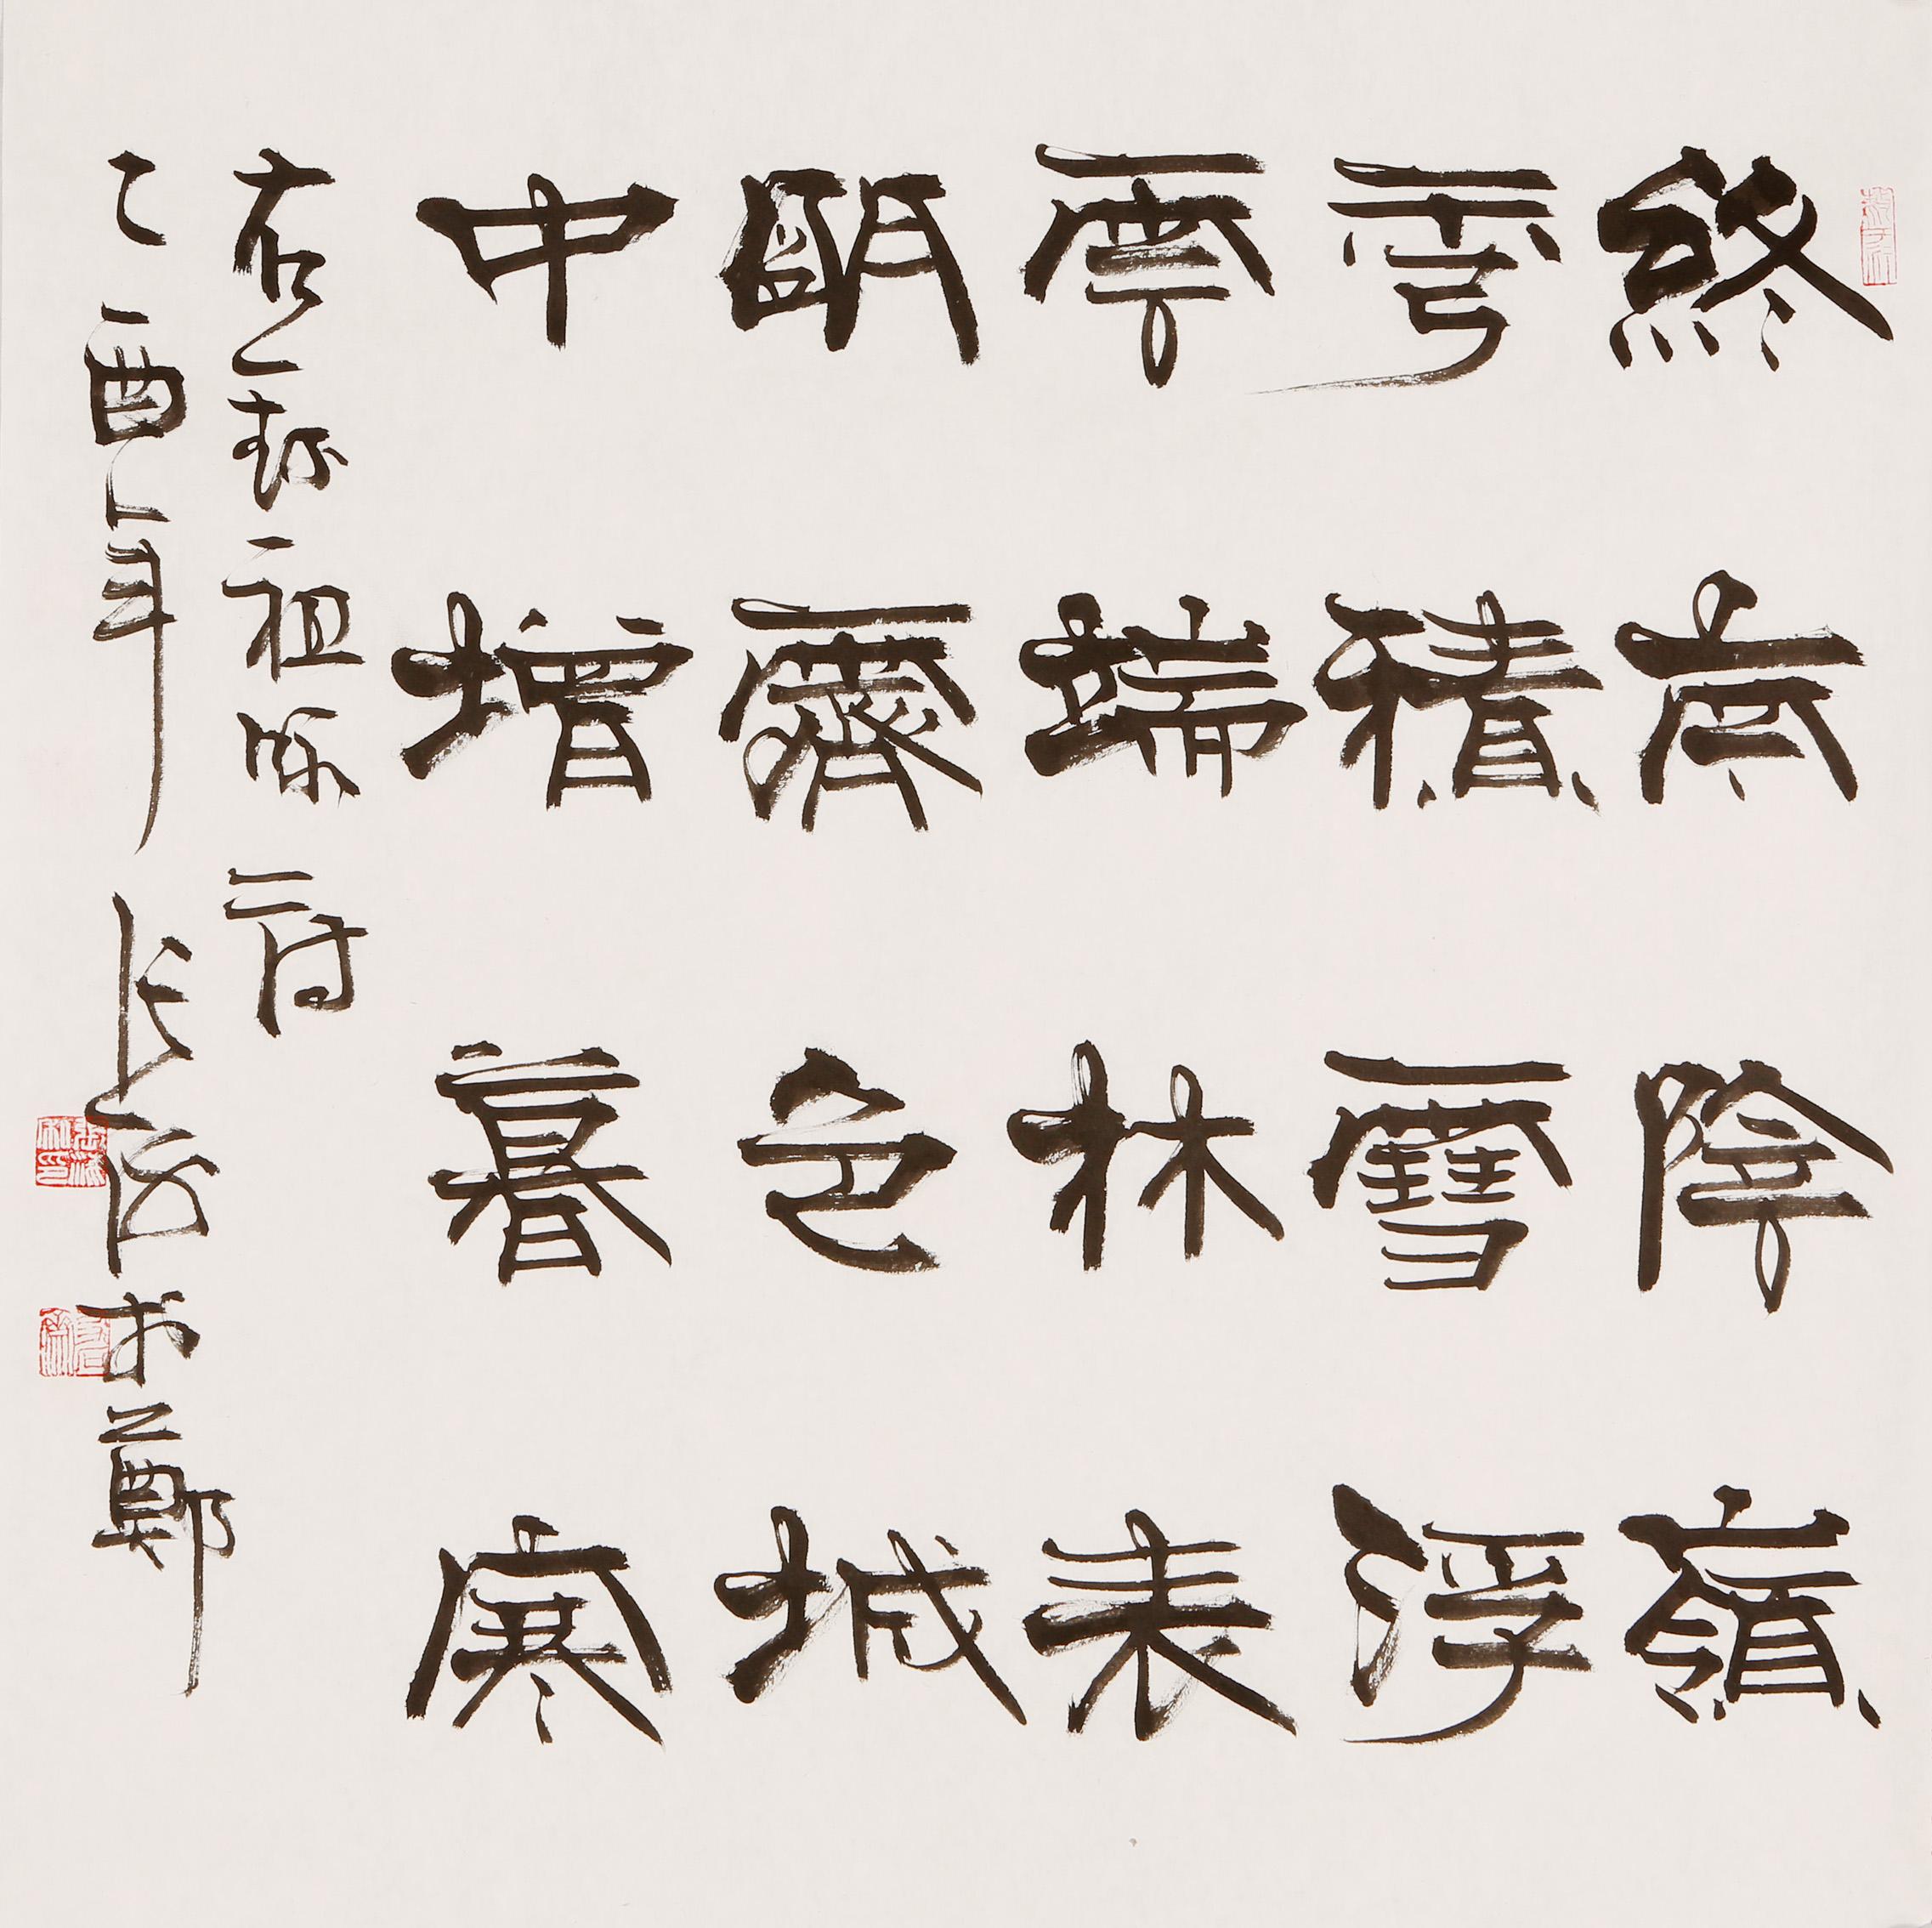 終南陰嶺
秀積雪浮
雲端林表
明霽色城
中增暮寒
右錄祖詠詩
乙酉年張海於鄭